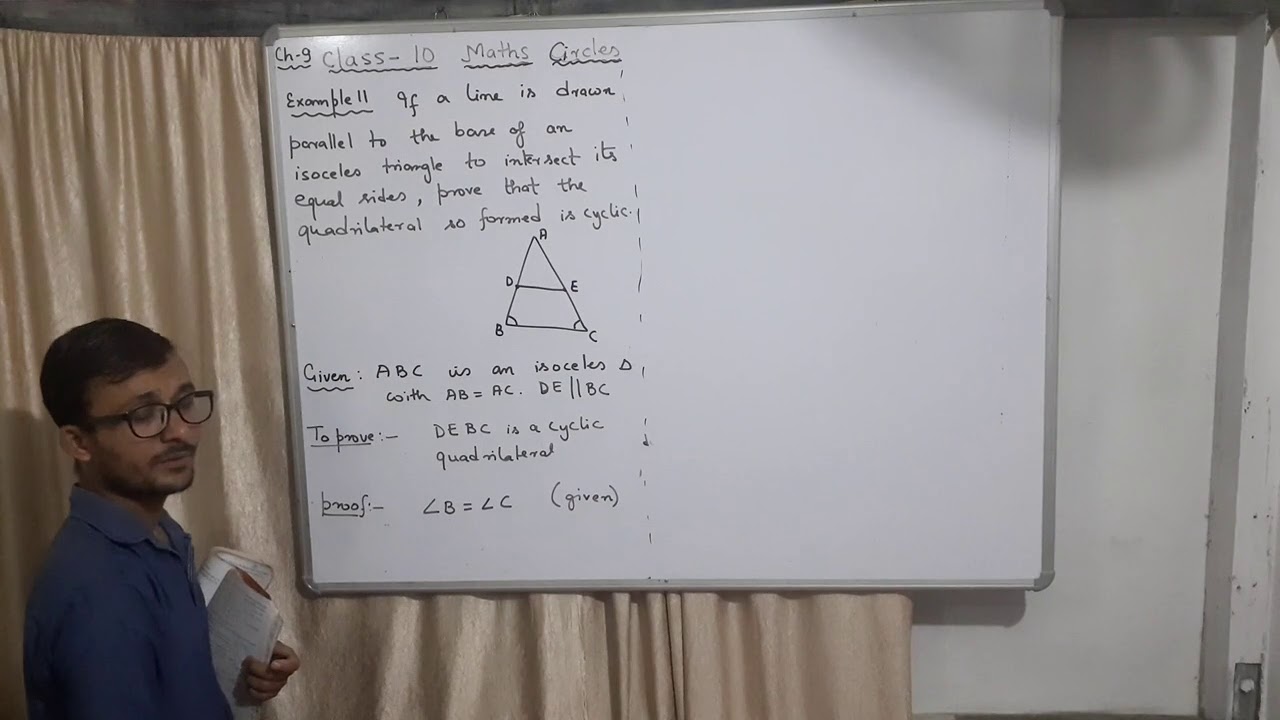 Ch-9 Class-10 Maths Circles
Example 11 If a line is drawn
parallel to the base of an
isoceles triangle to intersect its
equal sides, prove that the
quadrilateral so formed is cyclic.
A
D E
B C
Given: ABC is an isoceles Δ
with AB = AC. DE || BC
To prove:- DEBC is a cyclic
quadrilateral
proof:- ∠B = ∠C (given)